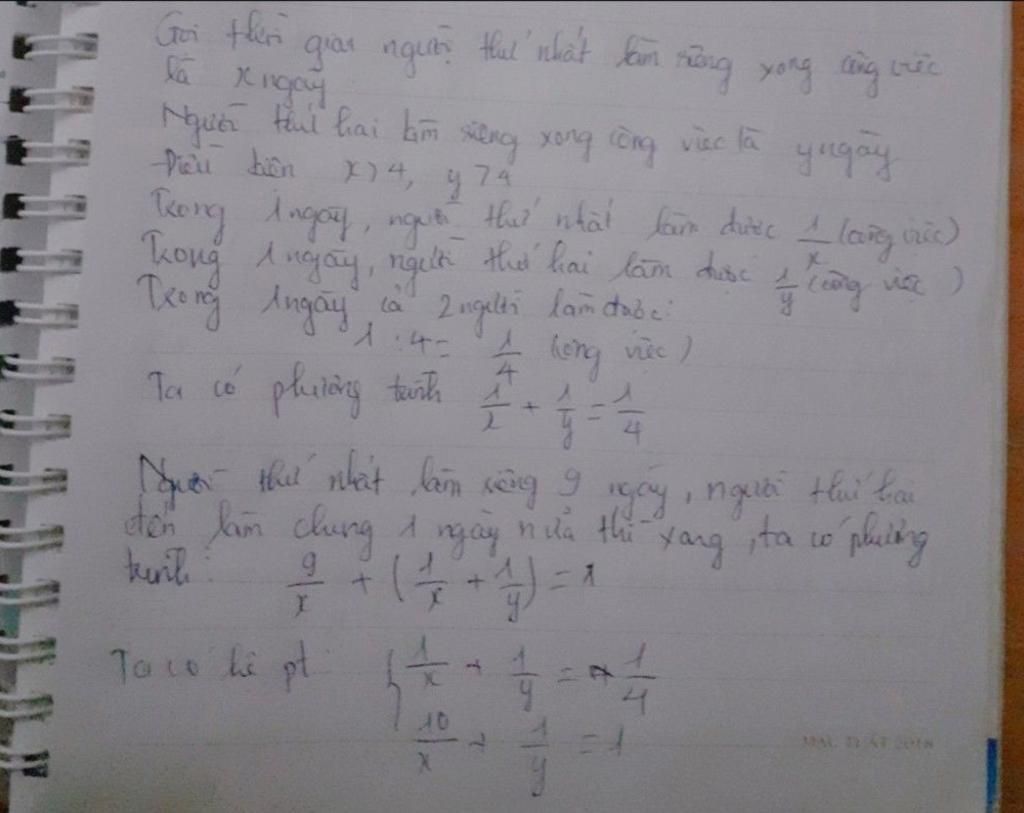 Gọi thời gian người thứ nhất làm riêng xong công việc
là x ngày
Người thứ hai làm riêng xong công việc là y ngày
Điều kiện x > 4, y > 4
Trong 1 ngày, người thứ nhất làm được 1/x (công việc)
Trong 1 ngày, người thứ hai làm được 1/y (công việc)
Trong 1 ngày cả 2 người làm được:
1 : 4 = 1/4 (công việc)
Ta có phương trình 1/x + 1/y = 1/4
Người thứ nhất làm riêng 9 ngày, người thứ hai
đến làm chung 1 ngày nữa thì xong, ta có phương
trình: 9/x + (1/x + 1/y) = 1
Ta có hệ pt: { 1/x + 1/y = 1/4
10/x + 1/y = 1